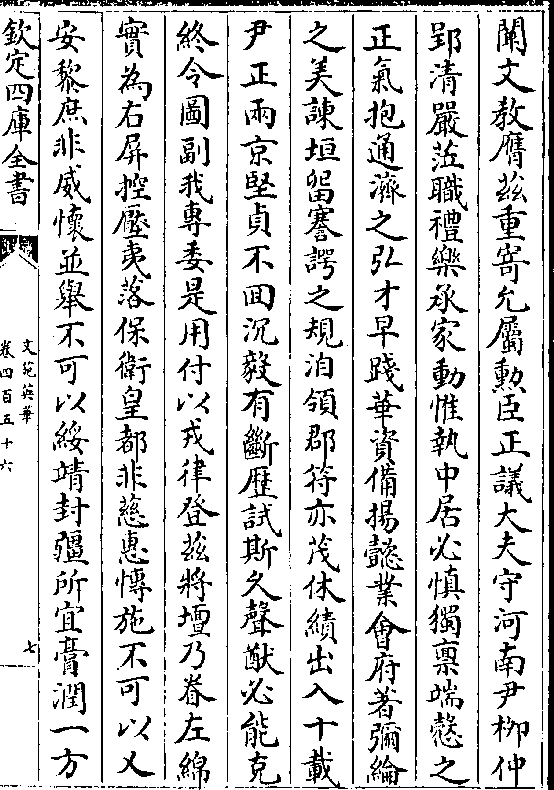 闡文教膺茲重寄允屬勲臣正議大夫守河南尹柳仲
郢清嚴莅職禮樂承家動惟執中居必慎獨禀端慤之
正氣抱通濟之弘才早踐華資備揚懿業會府著彌綸
之美諫垣留謇諤之規洎領郡符亦茂休績出入十載
尹正兩京堅貞不回沉毅有斷歴試斯久聲猷必能克
終令圖副我專委是用付以戎律登茲將壇乃眷左綿
實為右屏控壓夷落保衛皇都非慈惠慱施不可以乂
安黎庶非威懷並舉不可以綏靖封疆所宜膏潤一方
欽定四庫全書
文苑英華
卷四百五十六
七